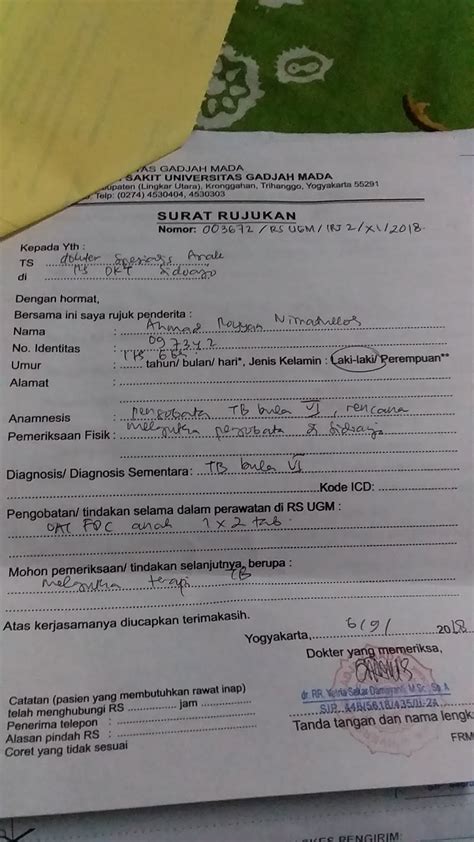 TAS GADJAH MADA
SAKIT UNIVERSITAS GADJAH MADA
upaten (Lingkar Utara), Kronggahan, Trihanggo, Yogyakarta 55291
Telp: (0274) 4530404, 4530303
SURAT RUJUKAN
Nomor: 003672 / RS UGM / IRJ 2 / XI / 2018.
Kepada Yth :
TS dokter Spesialis Anak
di RS DKT Sidoarjo
Dengan hormat,
Bersama ini saya rujuk penderita :
Nama : Ahmad Rayyan
No. Identitas : 097342
Umur : tahun/ bulan/ hari*, Jenis Kelamin : Laki-laki/ Perempuan**
Alamat :
Anamnesis : pengobata TB bula VI, rencana
Pemeriksaan Fisik : melanjutka pengobata di Sidoarjo
Diagnosis/ Diagnosis Sementara: TB bula VI
Kode ICD:
Pengobatan/ tindakan selama dalam perawatan di RS UGM :
OAT FDC anak 1 x 2 tab
Mohon pemeriksaan/ tindakan selanjutnya, berupa :
melanjutka terapi TB
Atas kerjasamanya diucapkan terimakasih.
Yogyakarta, 6/9/ 2018
Dokter yang memeriksa,
Catatan (pasien yang membutuhkan rawat inap)
telah menghubungi RS jam
Penerima telepon :
Alasan pindah RS :
Coret yang tidak sesuai
Tanda tangan dan nama lengk
FRM
KES PENGIRIM: